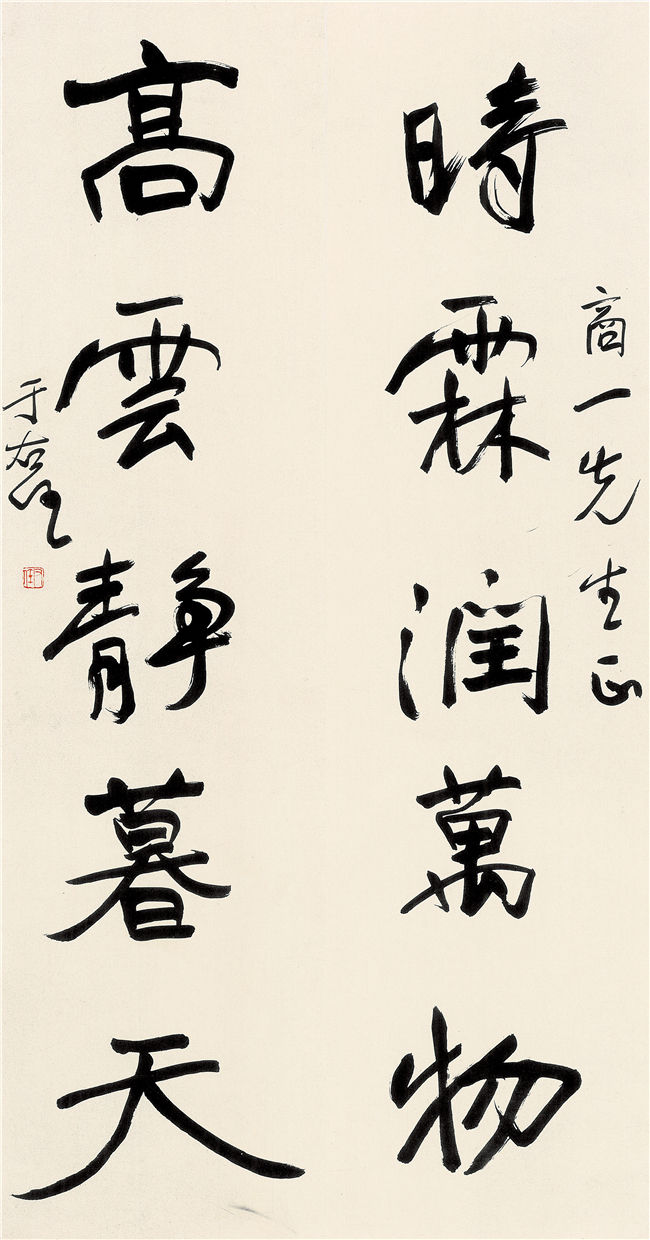 商一先生正
時霖潤萬物
高雲靜暮天
于右任